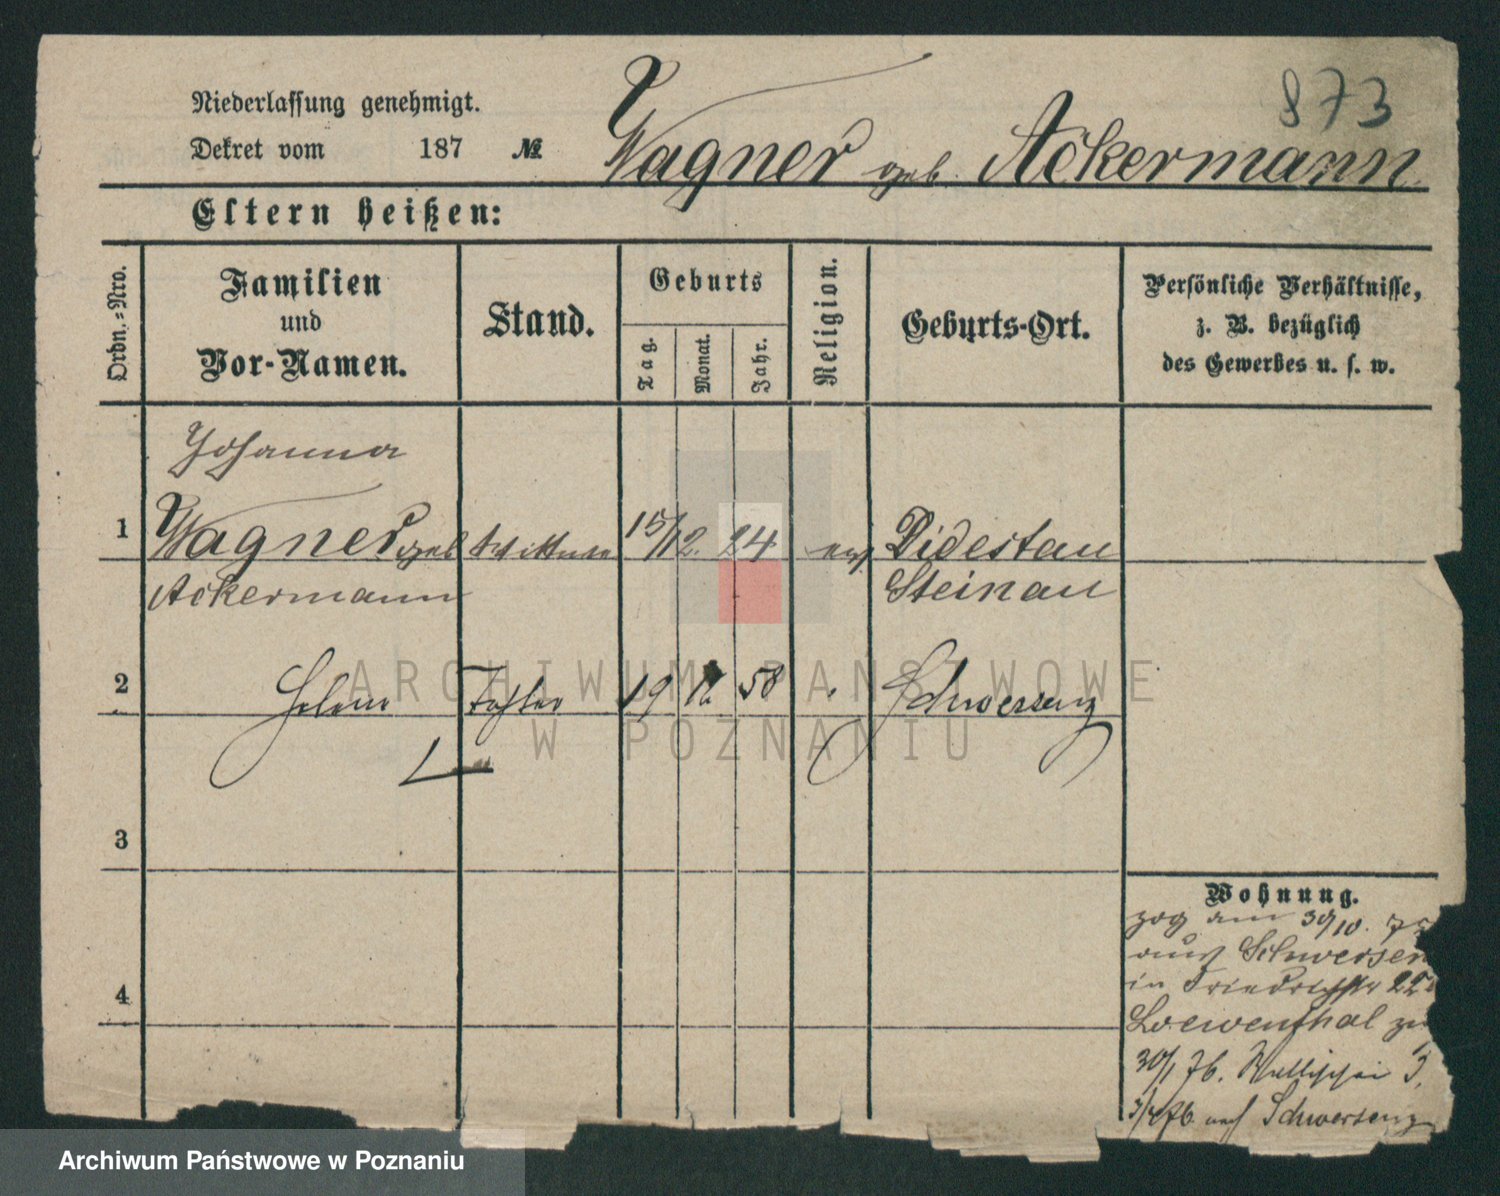 873
Niederlassung genehmigt.
Dekret vom 187 №
Wagner geb. Ackermann
Eltern heißen:
Ordn.=Nro.
Familien und Vor-Namen.
Stand.
Geburts
Tag. Monat. Jahr.
Religion.
Geburts-Ort.
Persönliche Verhältnisse,
z. B. bezüglich
des Gewerbes u. s. w.
Johanna
1 Wagner geb Wittwe 15/12. 24 ev Didestau
Ackermann Steinau
2 Helene Tochter 19 58 Schwersenz
3
4
Wohnung.
zog am 30/10. 75
aus Schwersen
in Friedrichstr 22
Loewenthal zu
30/1 76. Wallischei 3,
3/4 76 nach Schwersenz
ARCHIWUM PAŃSTWOWE
W POZNANIU
Archiwum Państwowe w Poznaniu